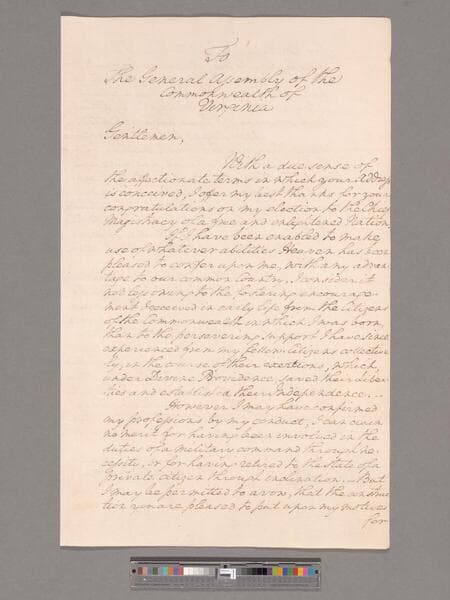 To
The General Assembly of the
Commonwealth of
Virginia
Gentlemen,
With a due sense of
the affectionate terms in which your Address
is conceived, I offer my best thanks for your
congratulations on my election to the Chief
Magistracy of a free and enlightened Nation.
If I have been enabled to make
use of whatever abilities Heaven has been
pleased to confer upon me, with any advan
tage to our common Country, I consider it
not less owing to the fostering encourage-
ment I received in early life from the Citizens
of the Commonwealth in which I was born,
than to the persevering support I have since
experienced from my fellow citizens collective
ly, in the course of their exertions, which,
under Divine Providence, saved their Liber
ties and established their Independence.
However I may have confirmed
my professions by my conduct, I can claim
no merit for having been involved in the
duties of a military command through ne-
cessity, or for having retired to the state of a
private citizen through inclination. But
I may be permitted to avow, that the construc
tion you are pleased to put upon my motives
for